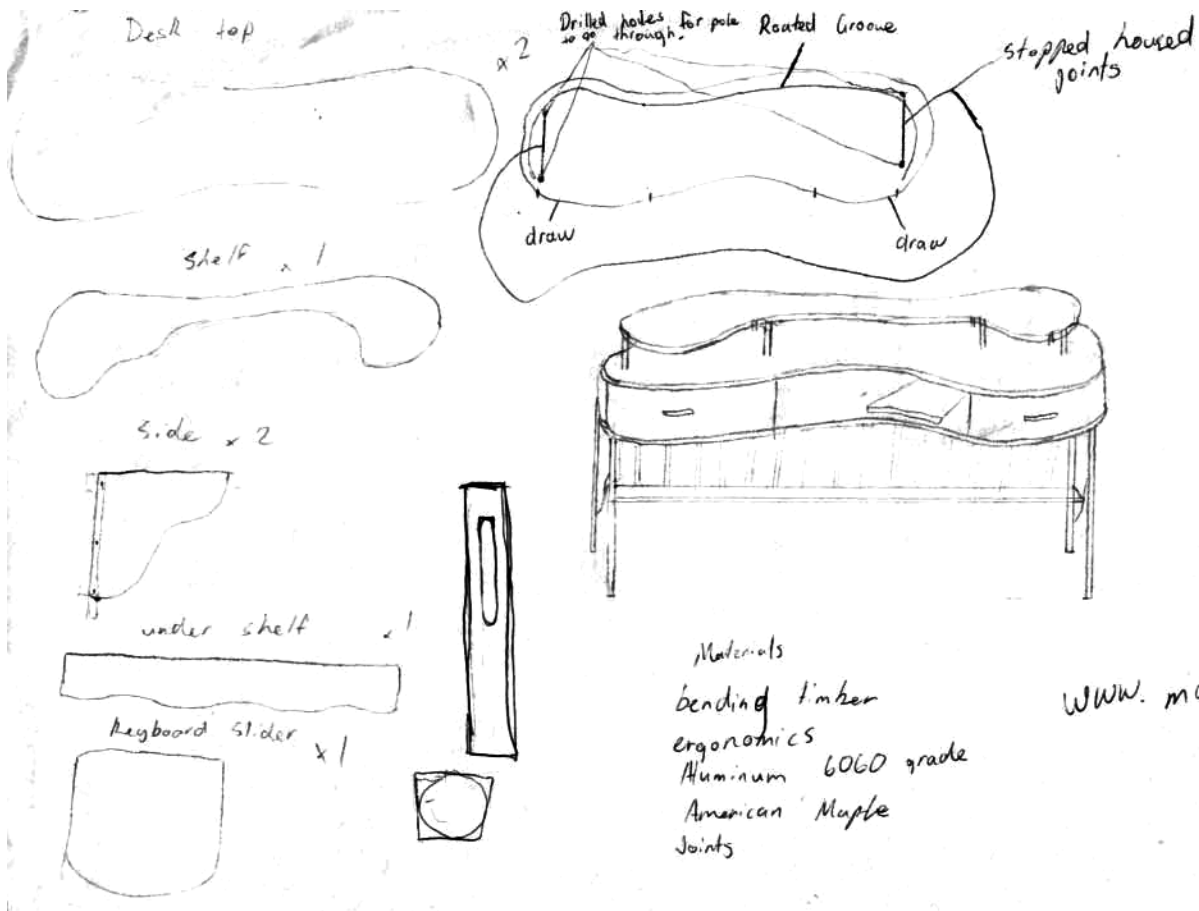 Desk top
x 2
Drilled holes for pole
to go through.
Roated Groove
stopped housed
joints
draw
draw
shelf x 1
side x 2
under shelf x 1
Keyboard slider x 1
Materials
bending timber
ergonomics
Aluminum 6060 grade
American Maple
Joints
www. m